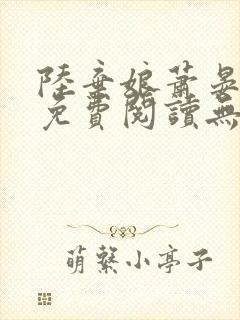 陸棄娘蕭晏
免費閱讀無
萌繫小亭子